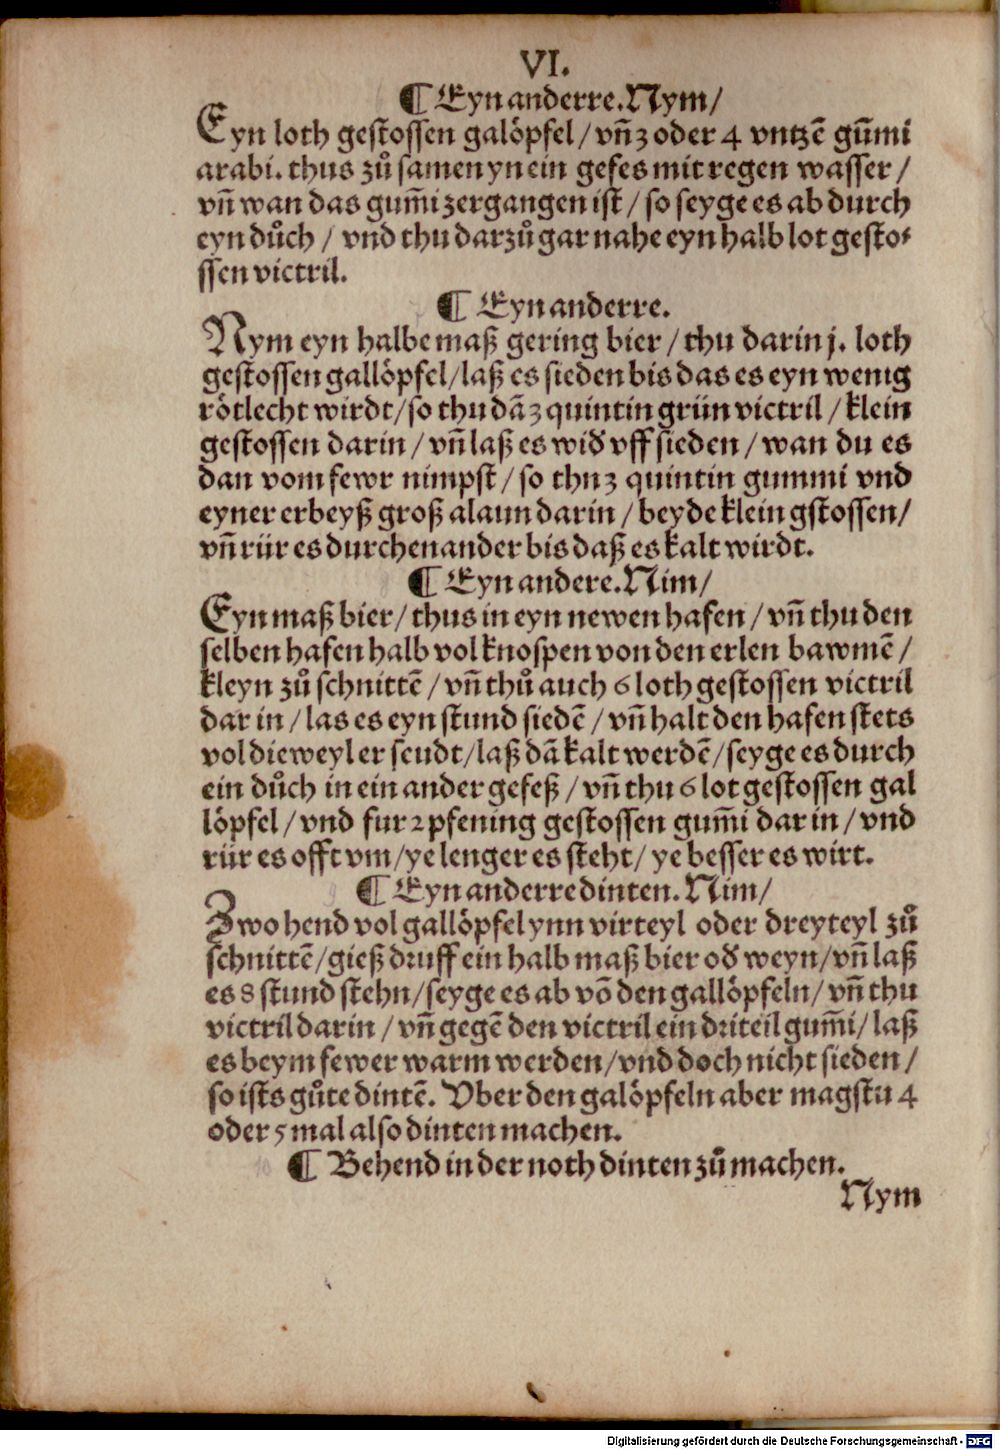 VI.
¶ Eyn anderre. Nym/
Eyn loth gestossen galöpfel / vñ 3 oder 4 vntzē gum̄i
arabi. thus zů samen yn ein gefes mit regen wasser /
vñ wan das gum̄i zergangen ist / so seyge es ab durch
eyn důch / vnd thu darzů gar nahe eyn halb lot gesto⸗
ssen victril.
¶ Eyn anderre.
Nym eyn halbe maß gering bier / thu darin j. loth
gestossen gallöpfel/laß es sieden bis das es eyn wenig
rötlecht wirdt/so thu dā 3 quintin grün victril / klein
gestossen darin / vñ laß es wid vff sieden / wan du es
dan vom fewr nimpst / so thu 3 quintin gummi vnd
eyner erbeyß groß alaun darin / beyde klein gstossen/
vñ rür es durchenander bis daß es kalt wirdt.
¶ Eyn andere. Nim/
Eyn maß bier/ thus in eyn newen hafen / vñ thu den
selben hafen halb vol knospen von den erlen bawmē /
kleyn zů schnittē / vñ thů auch 6 loth gestossen victril
dar in / las es eyn stund siedē / vñ halt den hafen stets
vol die weyl er seudt/laß dā kalt werdē/seyge es durch
ein důch in ein ander gefeß / vñ thu 6 lot gestossen gal
löpfel / vnd fur 2 pfening gestossen gum̄i dar in / vnd
rür es offt vm/ye lenger es steht/ ye besser es wirt.
¶ Eyn anderre dinten. Nim/
Zwo hend vol gallöpfel ynn virteyl oder dreyteyl zů
schnittē/gieß druff ein halb maß bier od weyn/vñ laß
es 8 stund stehn/seyge es ab vō den gallöpfeln/ vñ thu
victril darin / vñ gegē den victril ein driteil gum̄i/ laß
es beym fewer warm werden/vnd doch nicht sieden /
so ists gůte dintē. Vber den galöpfeln aber magstu 4
oder 5 mal also dinten machen.
¶ Behend in der noth dinten zů machen.
Nym
Digitalisierung gefördert durch die Deutsche Forschungsgemeinschaft - DFG